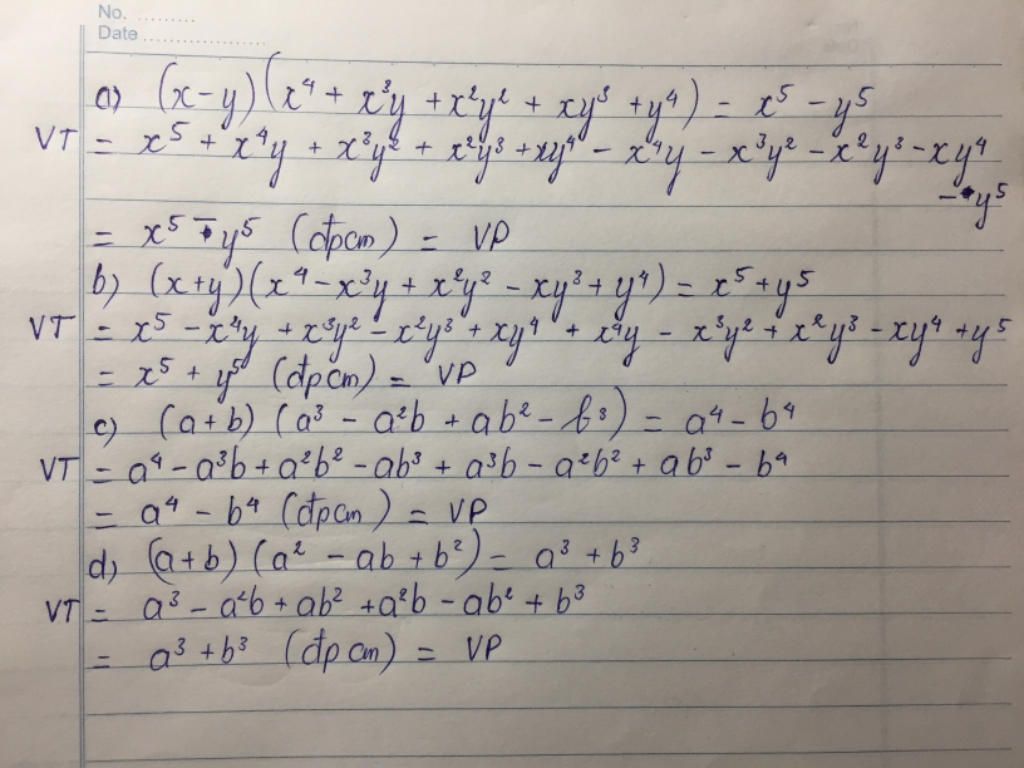 No. .........
Date ...................
a) (x-y)(x⁴ + x³y + x²y² + xy³ + y⁴) = x⁵ - y⁵
VT = x⁵ + x⁴y + x³y² + x²y³ + xy⁴ - x⁴y - x³y² - x²y³ - xy⁴
- y⁵
= x⁵ - y⁵ (đpcm) = VP
b) (x+y)(x⁴ - x³y + x²y² - xy³ + y⁴) = x⁵ + y⁵
VT = x⁵ - x⁴y + x³y² - x²y³ + xy⁴ + x⁴y - x³y² + x²y³ - xy⁴ + y⁵
= x⁵ + y⁵ (đpcm) = VP
c) (a+b) (a³ - a²b + ab² - b³) = a⁴ - b⁴
VT = a⁴ - a³b + a²b² - ab³ + a³b - a²b² + ab³ - b⁴
= a⁴ - b⁴ (đpcm) = VP
d) (a+b) (a² - ab + b²) = a³ + b³
VT = a³ - a²b + ab² + a²b - ab² + b³
= a³ + b³ (đpcm) = VP